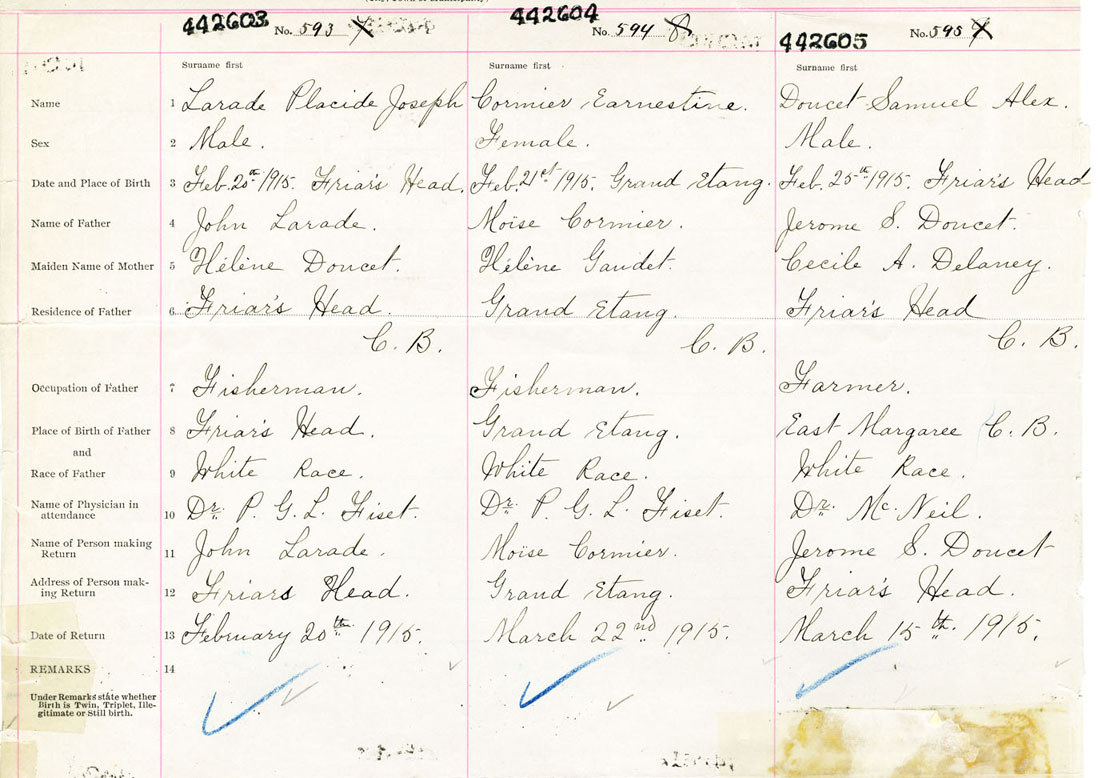 442603 No. 593 442604 No. 594 8 442605 No. 595
Surname first Surname first Surname first
Name 1 Larade Placide Joseph Cormier Earnestine. Doucet Samuel Alex.
Sex 2 Male. Female. Male.
Date and Place of Birth 3 Feb. 20th 1915. Friar's Head. Feb. 21st 1915. Grand Etang. Feb. 25th 1915. Friar's Head
Name of Father 4 John Larade. Moïse Cormier. Jerome S. Doucet.
Maiden Name of Mother 5 Hélène Doucet. Hélène Gaudet. Cecile A. Delaney.
Residence of Father 6 Friar's Head Grand Etang. Friar's Head
C. B. C. B. C. B.
Occupation of Father 7 Fisherman. Fisherman. Farmer.
Place of Birth of Father 8 Friar's Head. Grand Etang. East Margaree C. B.
and
Race of Father 9 White Race. White Race. White Race.
Name of Physician in
attendance 10 Dr. P. G. L. Fiset. Dr. P. G. L. Fiset. Dr. McNeil.
Name of Person making
Return 11 John Larade. Moïse Cormier. Jerome S. Doucet
Address of Person mak-
ing Return 12 Friars Head. Grand Etang. Friar's Head.
Date of Return 13 February 20th 1915. March 22nd 1915. March 15th. 1915.
REMARKS 14
Under Remarks state whether
Birth is Twin, Triplet, Ille-
gitimate or Still birth.